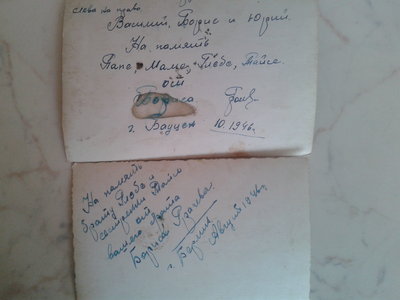 слева на право.
Василий, Борис и Юрий.
На память
Папе, Маме, Глебе, Тайсе.
от
Бориса
г. Бауцен 10.1946г.
На память
брату Глебе и
сестренки Тайсе
вашего брата
Бориса
г. Берлин. Август 1946г.